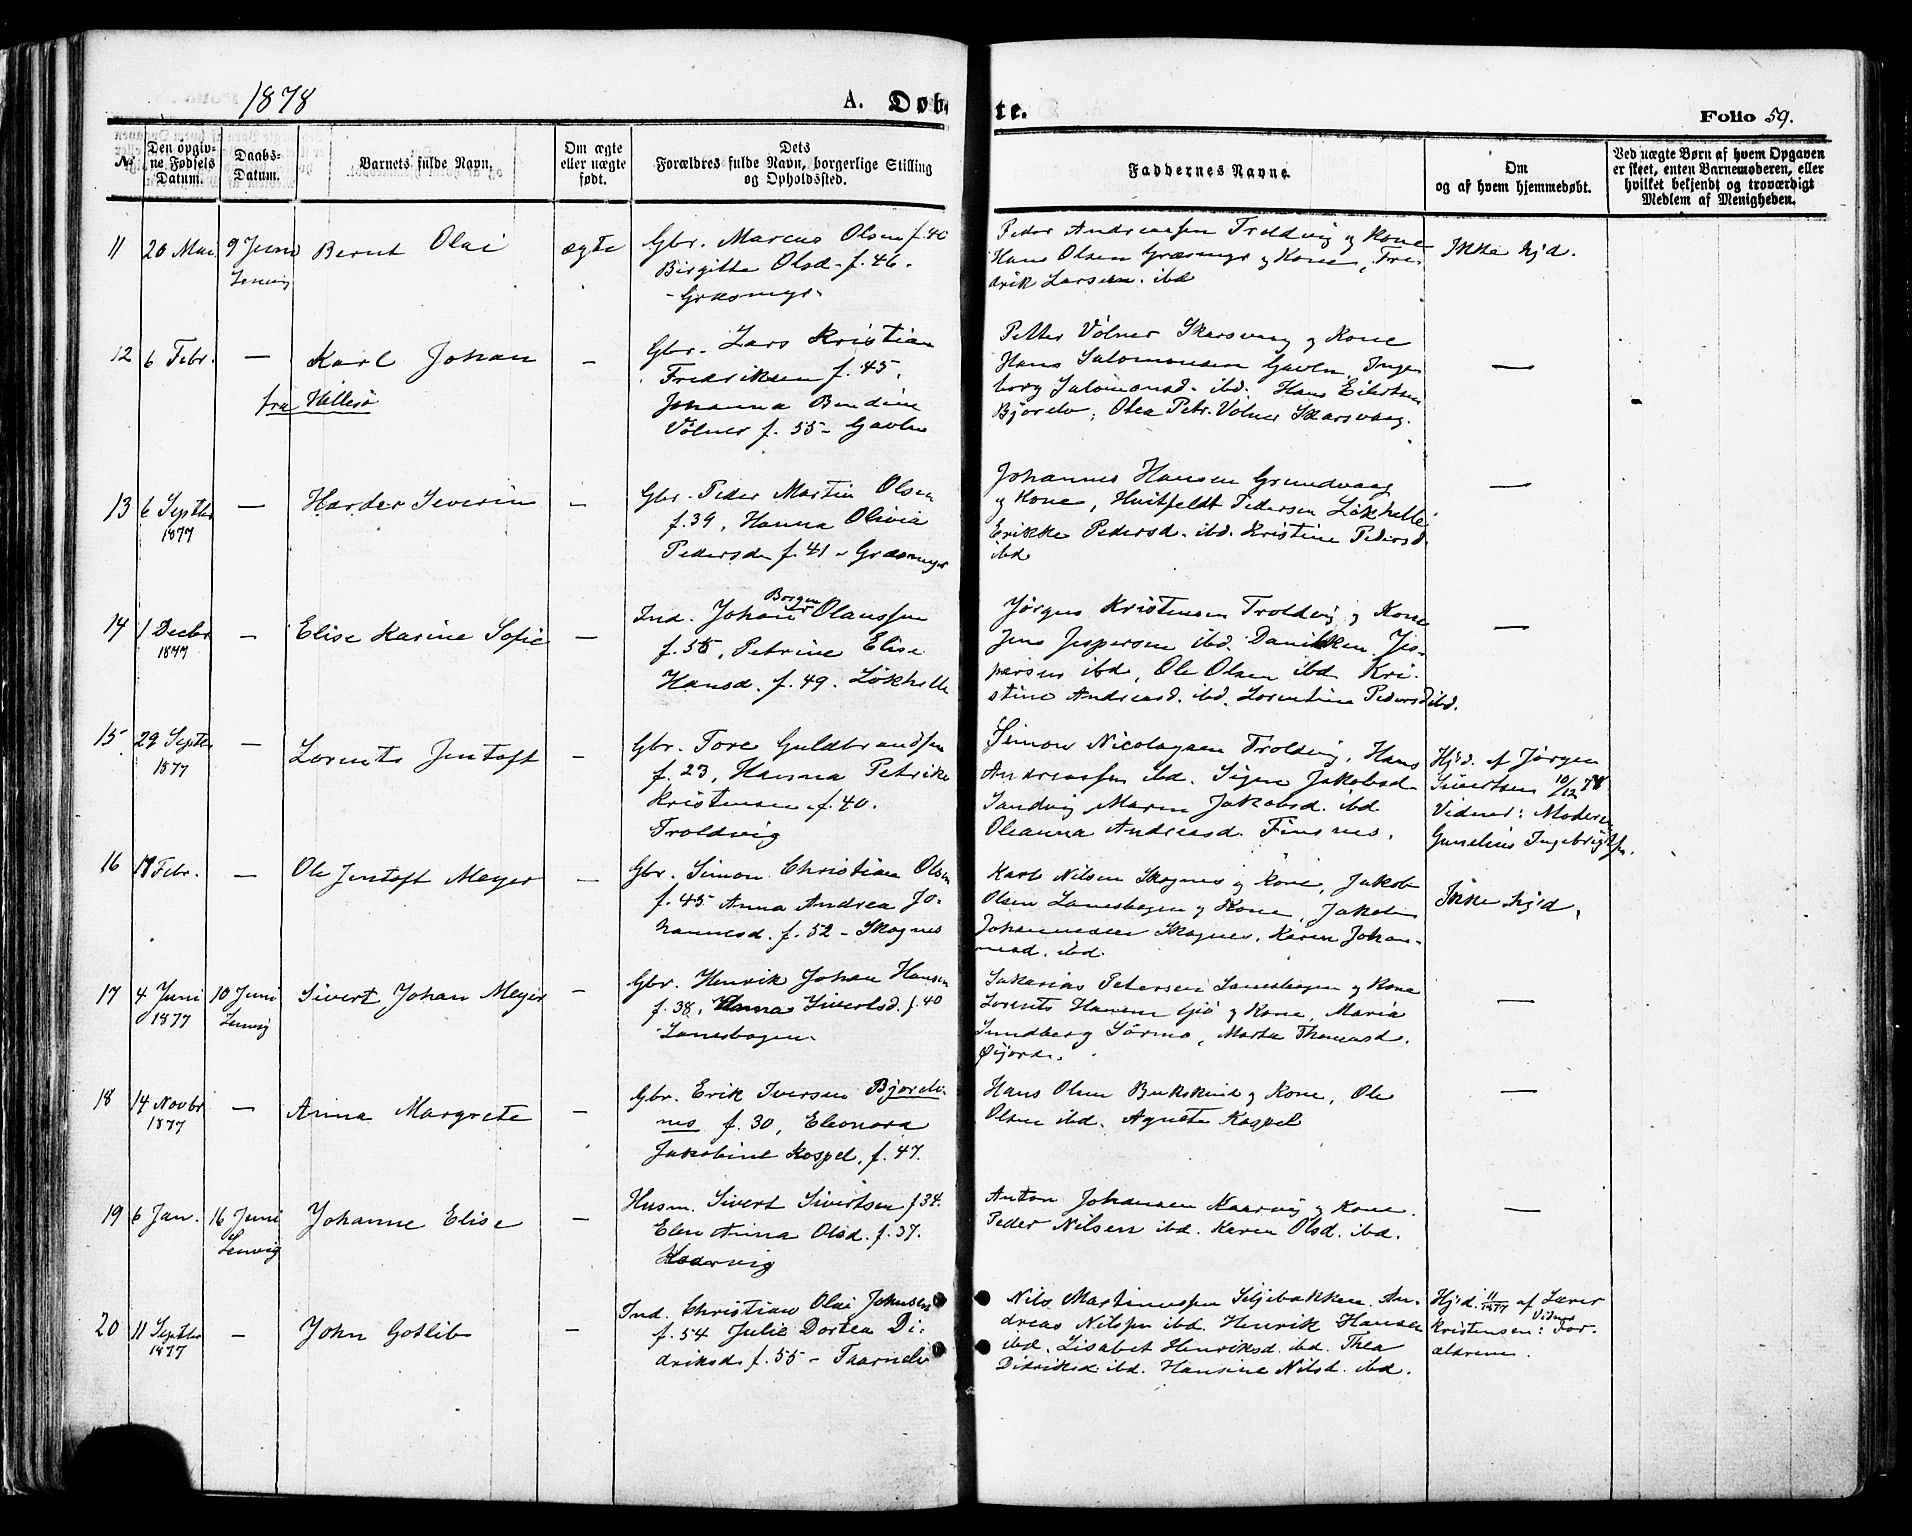 1878
A. Døb-
te.
Folio 59.
No
Den opgiv-
ne Fødsels
Datum.
Daabs-
Datum.
Barnets fulde Navn.
Om ægte
eller uægte
født.
Dets
Forældres fulde Navn, borgerlige Stilling
og Opholdssted.
Faddernes Navne.
Om
og af hvem hjemmedøbt.
Ved uægte Børn af hvem Opgaven
er skeet, enten Barnemoderen, eller
hvilket bekjendt og troværdigt
Medlem af Menigheden.
11
20 Mai
9 Juni
Lenvig
Bernt Olai
ægte
Gbr. Marcus Olsen f. 40
Birgitte Olsd. f. 46.
Græsmyr.
Peder Andreassen Troldvig og Kone
Hans Olsen Græsmyr og Kone, Fre-
drik Larsen. ibd
Ikke hjd.
12
6 Febr.
—
Karl Johan
fra Hillesø
—
Gbr. Lars Kristian
Fredriksen f. 45,
Johanna Bendine
Völner f. 55 - Gavln
Petter Völner Skarsvaag og Kone
Hans Salomonsen Gavln, Inge
borg Salomonsd. ibd. Hans Eilertsen
Bjorelv, Olea Petr. Völner Skarsvaag.
—
13
6 Septbr
1877
—
Harder Severin
—
Gbr. Peder Martin Olsen
f. 39, Hanna Olivia
Pedersd. f. 41 - Græsmyr
Johannes Hansen Grundvaag
og Kone, Hvitfeldt Pedersen Løkhelle
Erikke Pedersd. ibd. Kristine Pedersd.
ibd
—
14
1 Decbr
1877
—
Elise Karine Sofie
—
Borgen
Ind. Johan Olaussen
f. 55, Petrine Elise
Hansd. f. 49. Løkhelle
Jørgen Kristensen Troldvig og Kone
Jens Jespersen ibd. Danikken Jes-
persen ibd, Ole Olsen ibd Kri-
stine Andreasd. ibd. Lorentine Pedersd ibd.
—
15
29 Septbr
1877
—
Lorents Jentoft
—
Gbr. Tore Guldbrandsen
f. 23, Hanna Petrikke
Kristensen f. 40.
Troldvig
Simon Nicolaysen Troldvig, Hans
Andreassen ibd. Signe Jakobsd
Sandvig Maren Jakobsd. ibd
Oleanna Andreasd. Finsnes.
Hjd. af Jørgen
Sivertsen 10/12 78
Vidner: Moderen
Gunelius Ingebrigtsen.
16
17 Febr.
—
Ole Jentoft Meyer
—
Gbr. Simon Christian Olsen
f. 45 Anna Andrea Jo-
hannesd. f. 52 - Skognes
Karl Nilsen Skognes og Kone, Jakob
Olsen Lanesbogen og Kone, Jakob
Johannessen Skognes, Karen Johan-
nesd. ibd.
Ikke hjd.
17
4 Juni
1877
10 Juni
Lenvig
Sivert Johan Meyer
—
Gbr. Henrik Johan Hansen
f. 38, Anna Sivertsd. f. 40
Lanesbogen.
Sakarias Petersen Lanesbogen og Kone
Lorents Hansen Gjø og Kone, Maria
Sundberg Sørmo, Marta Thomasd.
Øijord.
—
18
14 Novbr
1877
—
Anna Margrete
—
Gbr. Erik Iversen Bjorelv-
nes f. 30, Eleonora
Jakobine Kospel, f. 47.
Hans Olsen Bukskind og Kone, Ole
Olsen ibd. Agnete Kospel
—
19
6 Jan.
16 Juni
Lenvig
Johanne Elise
—
Husm. Sivert Sivertsen f 34.
Elen Anna Olsd. f. 37.
Kaarvig
Anton Johansen Kaarvig og Kone.
Peder Nilsen ibd. Karen Olsd. ibd.
—
20
11 Septbr
1877
—
John Gotlib
—
Ind. Christian Olai Johnsen
f. 54 Julie Dortea Di-
driksd. f. 55 - Taarnelv
Nils Martinussen Seljebakken. An-
dreas Nilsen ibd. Henrik Hansen
ibd, Lisabet Henriksd. ibd. Thea
Didriksd ibd. Hansine Nilsd. ibd.
Hjd. af Lærer
Kristensen: Vidner For-
ældrene.